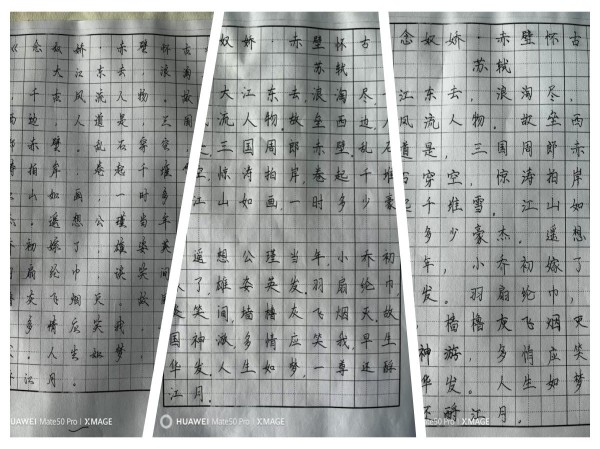 《念奴娇·赤壁怀古
大江东去,浪淘
千古风流人物。故
西边,人道是,三国
郎赤壁。乱石穿空
涛拍岸,卷起千堆
山如画,一时多
遥想公瑾当年
初嫁了,雄姿英
扇纶巾,谈笑间
灰飞烟灭。故
多情应笑我,
人生如梦,
江月。
HUAWEI Mate50 Pro | XMAGE
奴娇·赤壁怀古
苏轼
大江东去,浪淘尽,
流人物。故垒西边,人
三国周郎赤壁。乱石
惊涛拍岸,卷起千堆
江山如画,一时多少豪
遥想公瑾当年,小乔初
了,雄姿英发。羽扇纶巾,
笑间,墙橹灰飞烟灭。故
国神游,多情应笑我,早生
华发。人生如梦,一尊还酹
江月。
HUAWEI Mate50 Pro | XMAGE
念奴娇·赤壁怀古
苏轼
江东去,浪淘尽,
风流人物。故垒西
道是,三国周郎赤
穿空,惊涛拍岸
起千堆雪。江山如
多少豪杰。遥想
年,小乔初嫁了
发。羽扇纶巾,
墙橹灰飞烟灭
神游,多情应笑
华发。人生如梦
还酹江月。
HUAWEI Mate50 Pro | XMAGE